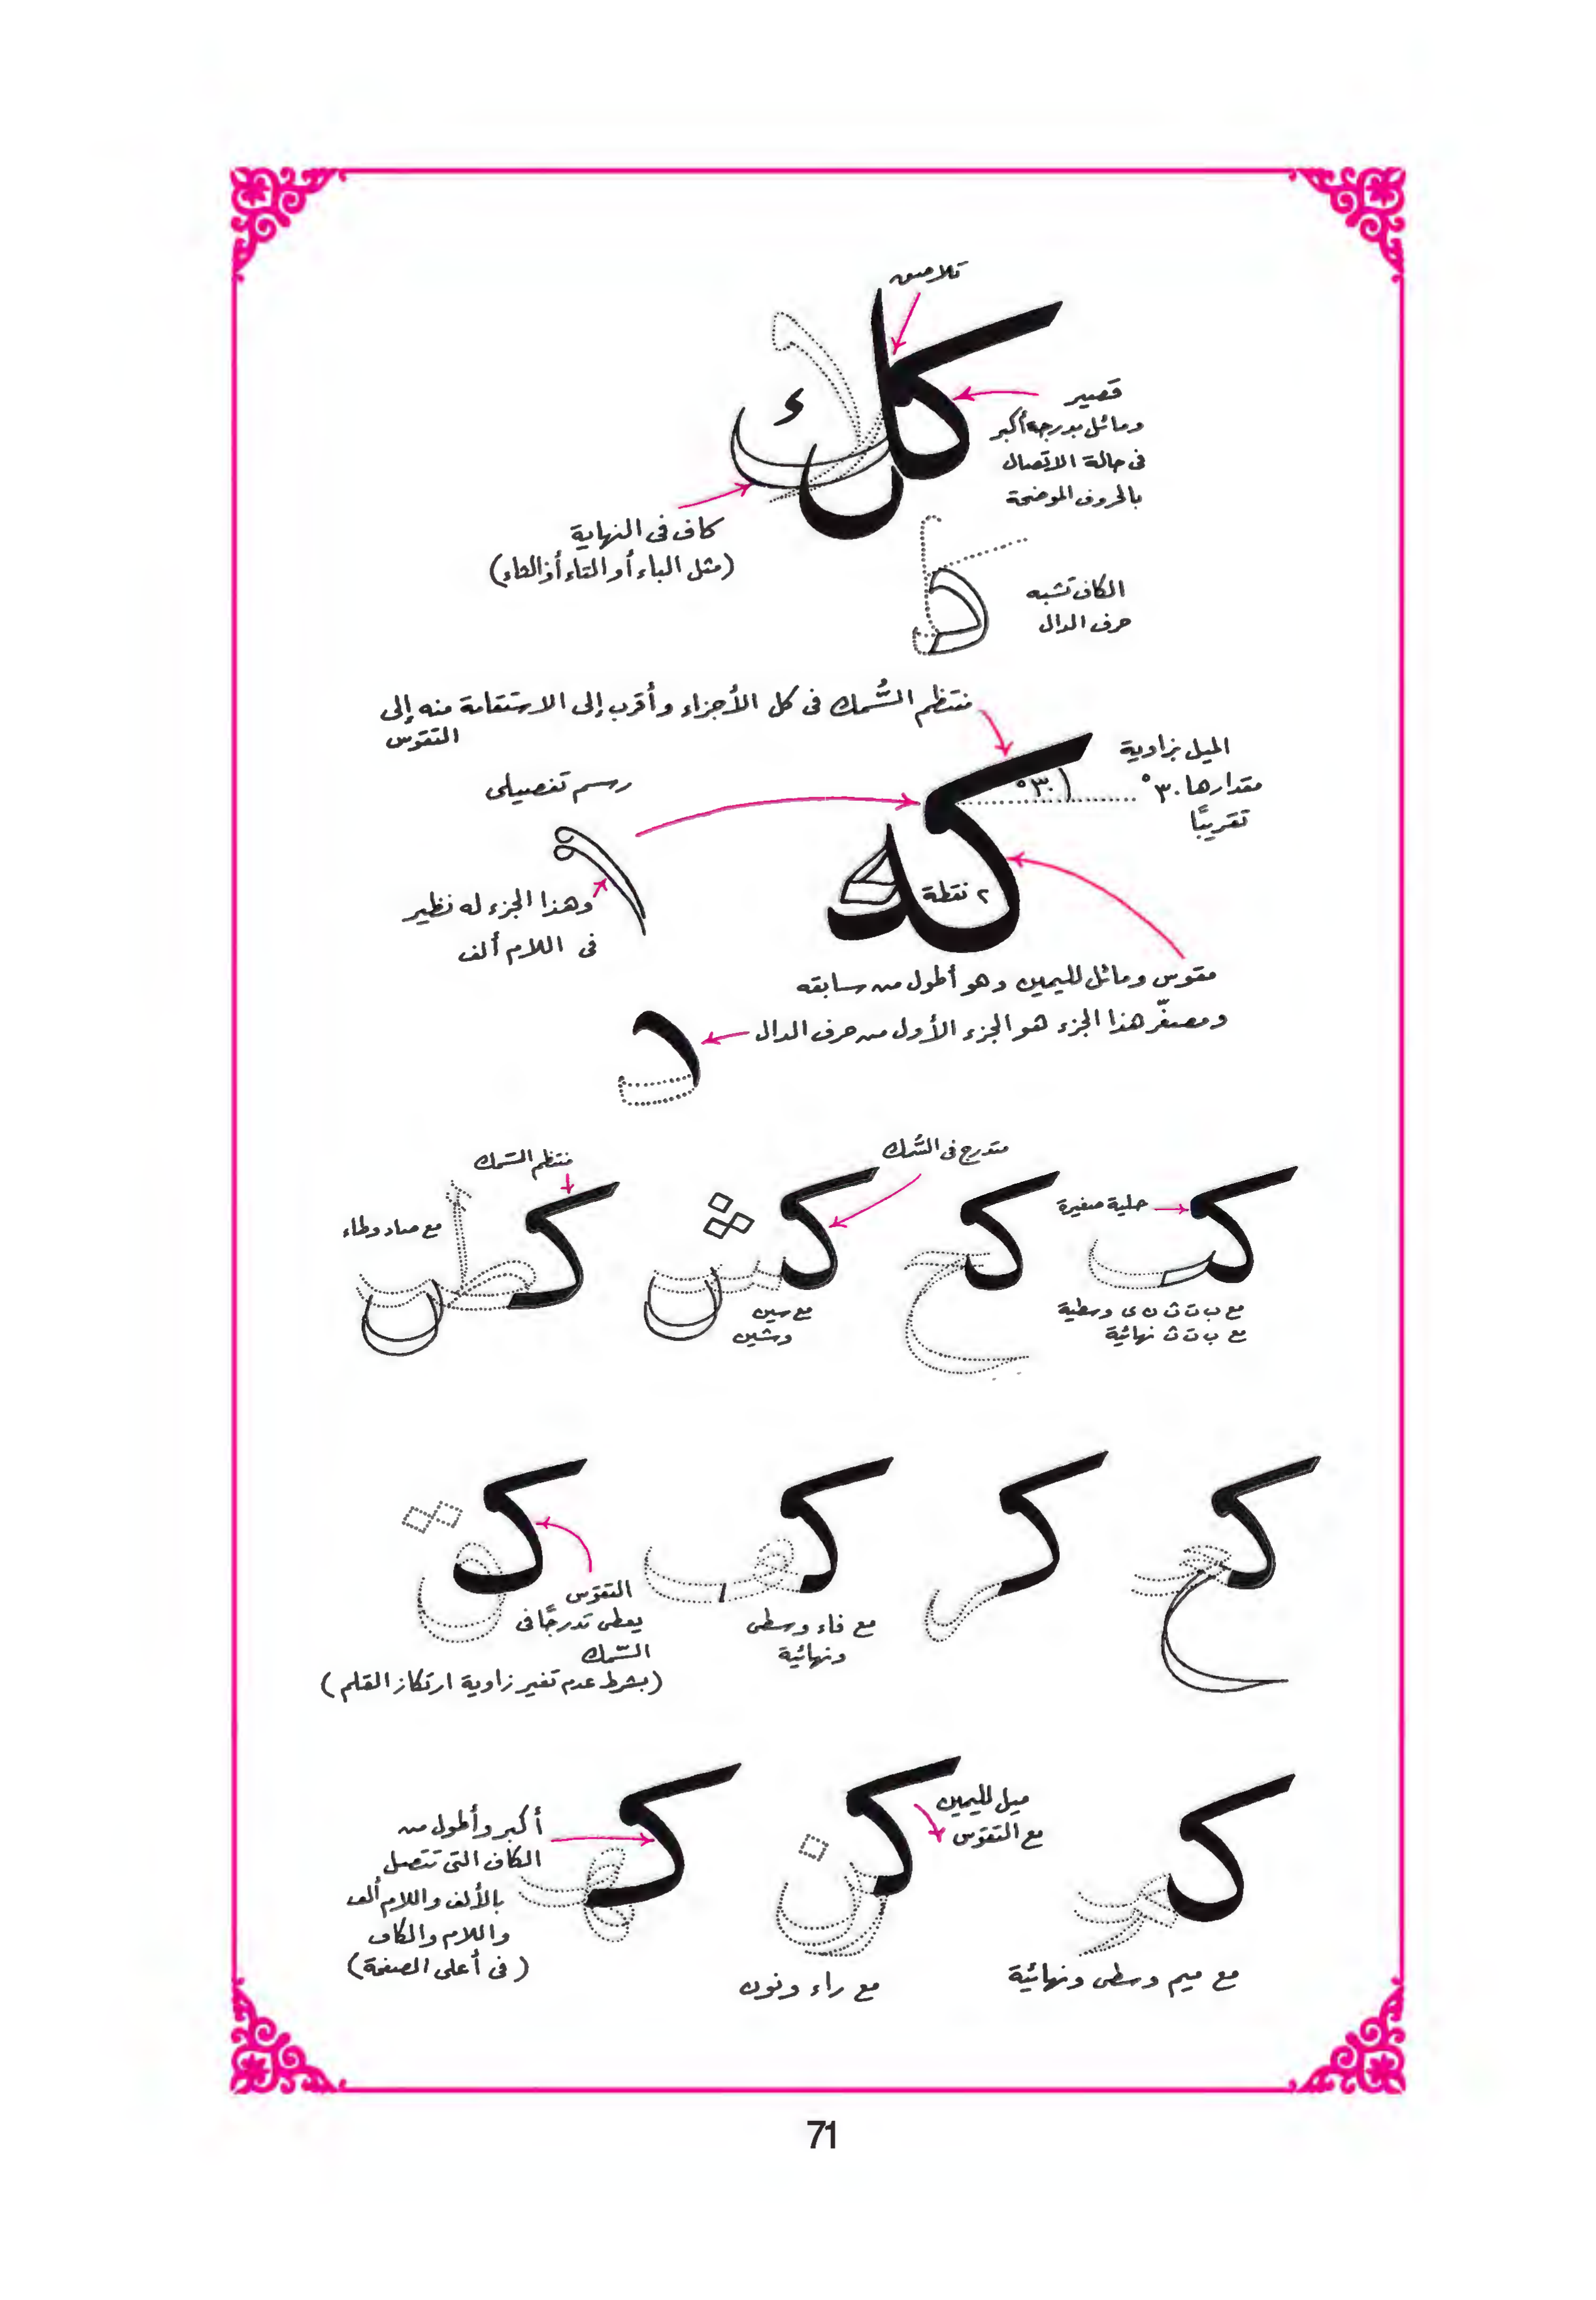 تلامس
كل
ك
قصير
ومائل بدرجة أكبر
فى حالة الاتصال
بالحروف الموضحة
كاف فى النهاية
(مثل الباء أو التاء أو الثاء)
الكاف تشبه
حرف الدال
منتظم السُّمك فى كل الأجزاء وأقرب إلى الاستقامة منه إلى
التقوس
الميل بزاوية
مقدارها ٣٠°
تقريبًا
٣٠°
رسم تفصيلى
كد
٢ نقطة
وهذا الجزء له نظير
فى اللام ألف
مقوس ومائل لليمين وهو أطول من سابقه
ومصغّر هذا الجزء هو الجزء الأول من حرف الدال
د
متدرج فى السُّمك
منتظم السّمك
حلية صغيرة
مع صاد وطاء
كب
كح
كش
مع ب ت ث ن ى وسطية
مع ب ت ث نهائية
مع سين
وشين
كح
كر
كف
كق
التقوّس
يعطى تدرجًا فى
السّمك
(بشرط عدم تغير زاوية ارتكاز القلم)
مع فاء وسطى
ونهائية
ميل لليمين
مع التقوّس
أكبر وأطول من
الكاف التى تتصل
بالألف واللام ألف
واللام والكاف
(فى أعلى الصفحة)
كن
مع ميم وسطى ونهائية
مع راء ونون
71